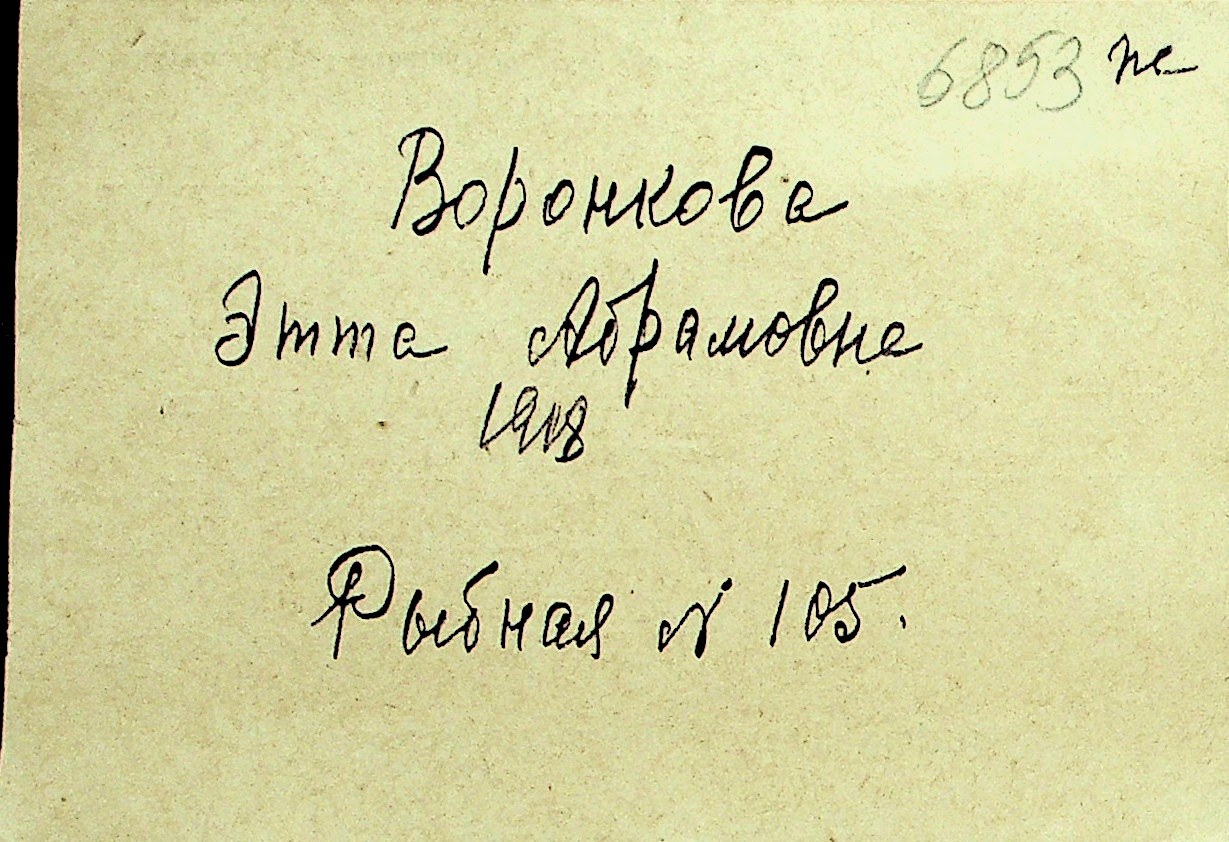 6853 пе
Воронкова
Этта Абрамовна
1918
Рыбная № 105.